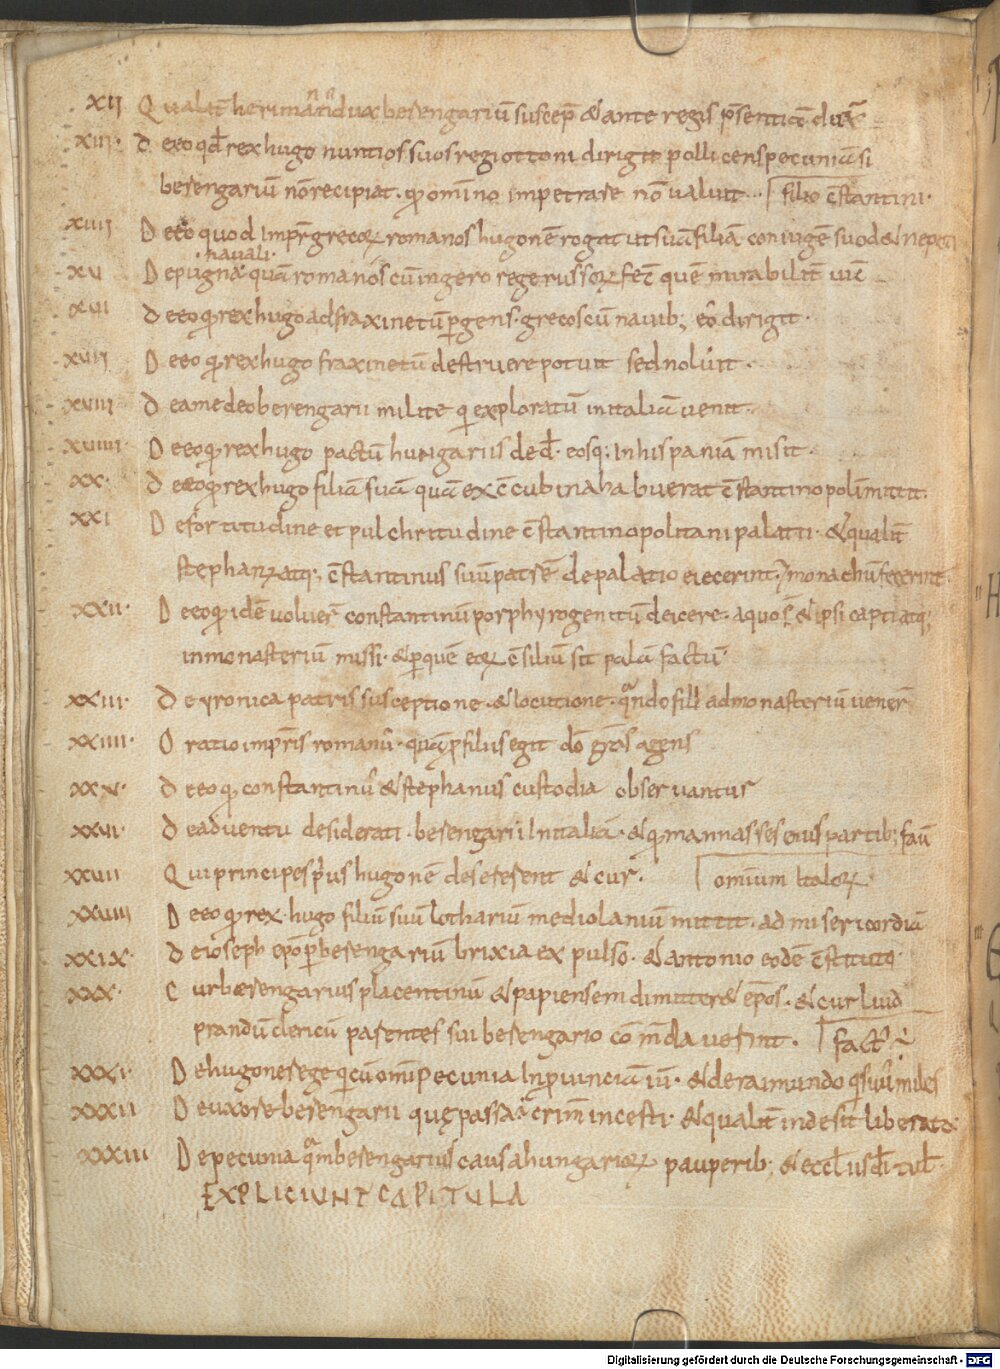 XII Qualit̄ herimannus dux berengariū suscep̄ & ante regis p̄sentiā dux̄
XIII· D eeo qd̄ rex hugo nuntios suos regi ottoni dirigit pollicens pecuniā si
berengariū nō recipiat· qꝫ omīno impetrare nō valuit·
filio c̄stantini·
XIIII D eeo quod impr̄ grecoꝝ romanos hugonē rogat ut suā filiā coniugē suo d& nepoti
·navali·
XV D e pugna quā romanos cū ingero rege russoꝝ fec̄ quē mirabilit̄ vic̄
XVI D eeo qꝫ rex hugo ad fraxinetū ꝑgens· grecos cū navib; eo dirigit·
XVII D eeo qꝫ rex hugo fraxinetū destruere potuit sed noluit·
XVIII D e amedeo berengarii milite qui exploratū in italiā venit·
XVIIII D eeo qꝫ rex hugo pactū hungariis ded̄· eosq; in hispaniā misit·
XX· D eeo qꝫ rex hugo filiā suā quā ex c̄cubina habuerat c̄stantinopolim mittit·
XXI D e fortitudine et pulchritudine c̄stantinopolitani palatii· & qualit̄
stephanꝰ atq; c̄stantinus suū patrē de palatio eiecerint· & monachū fecerint
XXII· D eeo qꝫ idē voluer̄ constantinū porphyrogenitū deicere· a quo s̄ & ipsi capti atq;
in monasteriū missi· & ꝑ quē eoꝝ c̄siliū sit palā factū
XXIII· D e yronica patris susceptione· & locutione· qᵃndo filii ad monasteriū venēr
XXIIII· O ratio impr̄is romani· quā p̄ filiis egit dō grās agens
XXV· D eeo qꝫ constantinꝰ & stephanus custodia observantur
XXVI· D e adventu desiderati· berengarii in italiā· & qꝫ mannasses eius partib; faū
XXVII Q ui principes p̄us hugonē deseresent & cur·
omium italoꝝ·
XXVIII D eeo qꝫ rex· hugo filiū suū lothariū mediolanium mittit· ad misericordiā
XXIX· D e ioseph ep̄o ꝑ berengariū brixia expulso· & antonio eodē c̄stituto
XXX· C ur berengarius placentinū & papiensem dimitter& ep̄os· & cur liud
prandū clericū parentes sui berengario cōmdaverint·
fact̄
XXXI· D e hugone rege qui cū omī pecunia in ꝓvinciā iū· & de raimundo
XXXII D e uxore berengarii quę passa ē crīm incesti· & qualit̄ inde sit liberata·
XXXIII D e pecunia qᵃm berengarius causa hungarioꝝ pauperib; & eccl̄iis
EXPLICIUNT CAPITULA
Digitalisierung gefördert durch die Deutsche Forschungsgemeinschaft - DFG